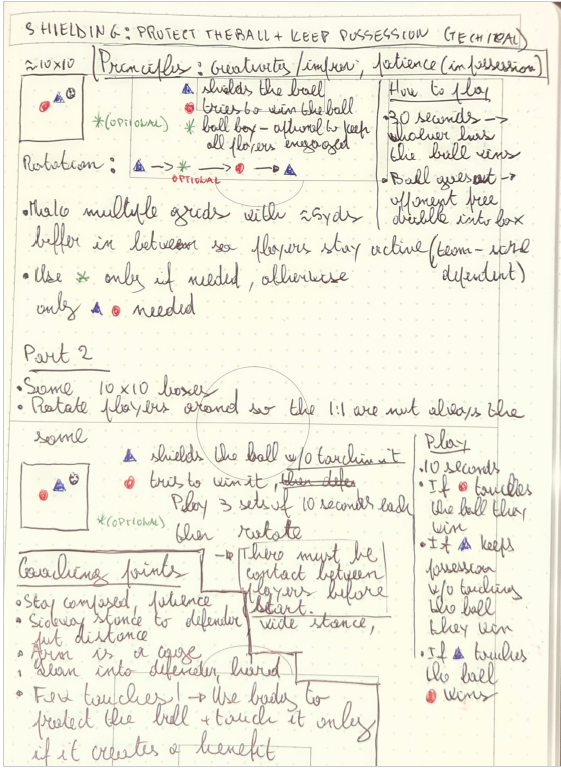 SHIELDING: PROTECT THE BALL + KEEP POSSESSION (TECHICAL)
≈10x10
Principles: creativites/improv, patience (in possession)
shields the ball
tries to win the ball
*(OPTIONAL)
* ball boy - optional to keep
all players engaged
Rotation: → * → →
OPTIONAL
How to play
• 30 seconds →
whoever has
the ball wins
• Ball goes out →
opponent free
dribble into box
• Make multiple grids with ≈5yds
buffer in between so players stay active (team-size
defendent)
• Use * only if needed, otherwise
only needed
Part 2
• Same 10x10 boxes
• Rotate players around so the 1:1 are not always the
same
shields the ball w/o touchin it
tries to win it, then defen
*(OPTIONAL)
Play 3 sets of 10 seconds each
then rotate
→ There must be
contact between
players before
start.
Play
• 10 seconds
• If touches
the ball they
win
• If keeps
possession
w/o touching
the ball
they win
• If touches
the ball
wins
Coaching points
• Stay composed, patience
• Sideway stance to defender, wide stance,
put distance
• Arm is a cage
• Lean into defender, hard
• Few touches! → Use body to
protect the ball + touch it only
if it creates a benefit